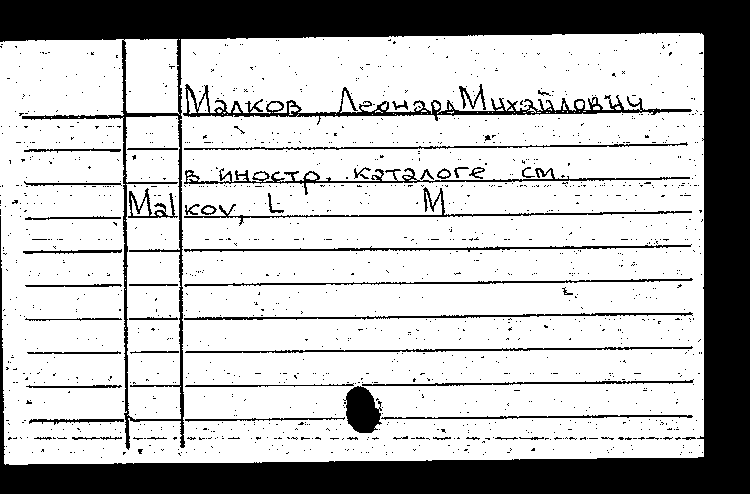 Малков, Леонард Михайлович
в иностр. каталоге см.
Malkov, L M